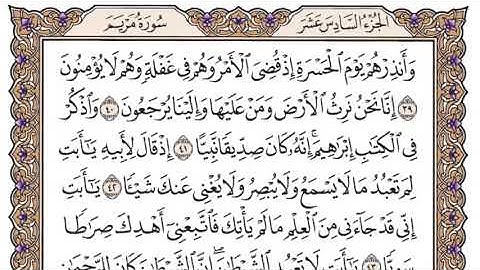 الجُزْءُ السَّادِسَ عَشَرَ سُورَةُ مَرْيَمَ
وَأَنذِرْهُمْ يَوْمَ ٱلْحَسْرَةِ إِذْ قُضِىَ ٱلْأَمْرُ وَهُمْ فِى غَفْلَةٍ وَهُمْ لَا يُؤْمِنُونَ
٣٩ إِنَّا نَحْنُ نَرِثُ ٱلْأَرْضَ وَمَنْ عَلَيْهَا وَإِلَيْنَا يُرْجَعُونَ ٤٠ وَٱذْكُرْ
فِى ٱلْكِتَٰبِ إِبْرَٰهِيمَ ۚ إِنَّهُۥ كَانَ صِدِّيقًا نَّبِيًّا ٤١ إِذْ قَالَ لِأَبِيهِ يَٰٓأَبَتِ
لِمَ تَعْبُدُ مَا لَا يَسْمَعُ وَلَا يُبْصِرُ وَلَا يُغْنِى عَنكَ شَيْـًٔا ٤٢ يَٰٓأَبَتِ
إِنِّى قَدْ جَآءَنِى مِنَ ٱلْعِلْمِ مَا لَمْ يَأْتِكَ فَٱتَّبِعْنِىٓ أَهْدِكَ صِرَٰطًا
سَوِيًّا ٤٣ يَٰٓأَبَتِ لَا تَعْبُدِ ٱلشَّيْطَٰنَ ۖ إِنَّ ٱلشَّيْطَٰنَ كَانَ لِلرَّحْمَٰنِ